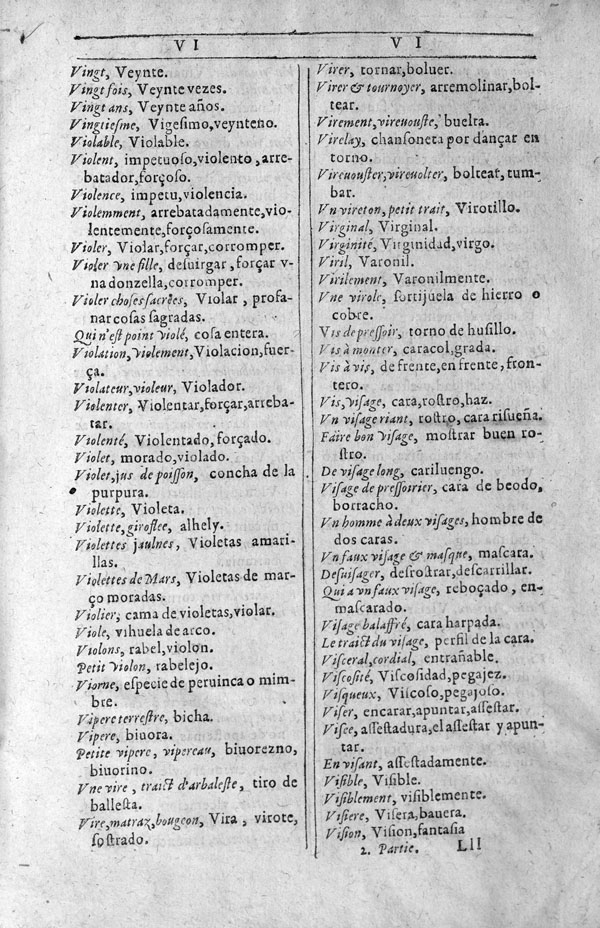 VI
Vingt, Veynte.
Vingt fois, Veynte vezes.
Vingt ans, Veynte años.
Vingtiesme, Vigesimo, veynteno.
Violable, Violable.
Violent, impetuoso, violento, arre-
batador, forçoso.
Violence, impetu, violencia.
Violemment, arrebatadamente, vio-
lentemente, forçosamente.
Violer, Violar, forçar, corromper.
Violer vne fille, desuirgar, forçar v-
na donzella, corromper.
Violer choses sacrées, Violar, profa-
nar cosas sagradas.
Qui n'est point violé, cosa entera.
Violation, violement, Violacion, fuer-
ça.
Violateur, violeur, Violador.
Violenter, Violentar, forçar, arreba-
tar.
Violenté, Violentado, forçado.
Violet, morado, violado.
Violet, jus de poisson, concha de la
purpura.
Violette, Violeta.
Violette, giroflee, alhely.
Violettes jaulnes, Violetas amari-
llas.
Violettes de Mars, Violetas de mar-
ço moradas.
Violier, cama de violetas, violar.
Viole, vihuela de arco.
Violons, rabel, violon.
Petit violon, rabelejo.
Viorne, especie de peruinca o mim-
bre.
Vipere terrestre, bicha.
Vipere, biuora.
Petite vipere, vipereau, biuorezno,
biuorino.
Vne vire, traict d'arbaleste, tiro de
ballesta.
Vire, matraz, bougeon, Vira, virote,
sostrado.
VI
Virer, tornar, boluer.
Virer & tournoyer, arremolinar, bol-
tear.
Virement, vireuouste, buelta.
Virelay, chansoneta por dançar en
torno.
Vireuouster, vireuolter, boltear, tum-
bar.
Vn vireton, petit trait, Virotillo.
Virginal, Virginal.
Virginité, Virginidad, virgo.
Viril, Varonil.
Virilement, Varonilmente.
Vne virole, sortijuela de hierro o
cobre.
Vis de pressoir, torno de husillo.
Vis à monter, caracol, grada.
Vis à vis, de frente, en frente, fron-
tero.
Vis, visage, cara, rostro, haz.
Vn visage riant, rostro, cara risueña.
Faire bon visage, mostrar buen ro-
stro.
De visage long, cariluengo.
Visage de pressoirier, cara de beodo,
borracho.
Vn homme à deux visages, hombre de
dos caras.
Vn faux visage & masque, mascara.
Desuisager, desrostrar, descarrillar.
Qui a vn faux visage, reboçado, en-
mascarado.
Visage balaffré, cara harpada.
Le traict du visage, perfil de la cara.
Visceral, cordial, entrañable.
Viscosité, Viscosidad, pegajez.
Visqueux, Viscoso, pegajoso.
Viser, encarar, apuntar, assestar.
Visee, assestadura, el assestar y apun-
tar.
En visant, assestadamente.
Visible, Visible.
Visiblement, visiblemente.
Visiere, Visera, bauera.
Vision, Vision, fantasia
2. Partie. Lll